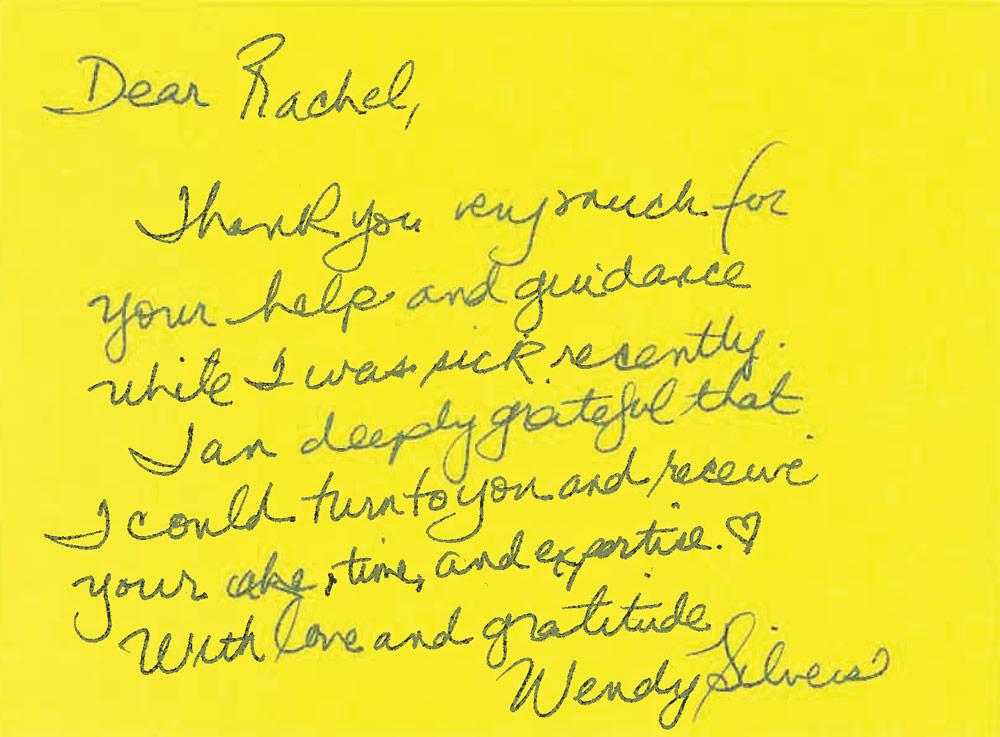 Dear Rachel,
Thank you very much for
your help and guidance
while I was sick recently.
I am deeply grateful that
I could turn to you and receive
your care, time, and expertise. ♡
With love and gratitude,
Wendy Silvers